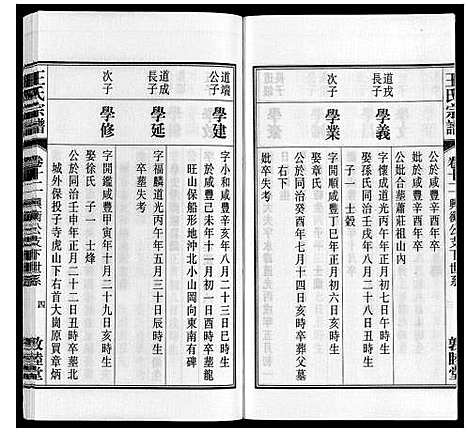 王氏宗譜
卷十二 興衡公支下世系
敦睦堂
公於咸豐辛酉年卒
妣於咸豐辛酉年卒
公妣合墓蕭莊祖山內
道戌
長子
學義
字懷成道光丙午年正月初七日酉時生
娶孫氏同治壬戌年八月二十八日亥時生
子一 士毅
次子
學業
字開順咸豐丁巳年正月初六日亥時生
娶章氏
公於同治癸酉年七月十四日亥時卒葬父墓
右下
妣卒墓失考
道端
公子
學建
字小和咸豐辛亥年八月二十三日巳時生
於咸豐己未年十一月初一日酉時卒墓龍
旺山保船形地沖北小山岡向東南有碑
道成
長子
學延
字福麟道光丙午年五月三十日辰時生
卒墓失考
次子
學修
字開鑑咸豐甲寅年十月二十九日亥時生
娶徐氏 子一 士烽
公於同治壬申年正月二十二日丑時卒墓北
城外保投子寺虎山下右首大崗原買章炳
王氏宗譜
卷十二 興衡公支下世系
四
敦睦堂